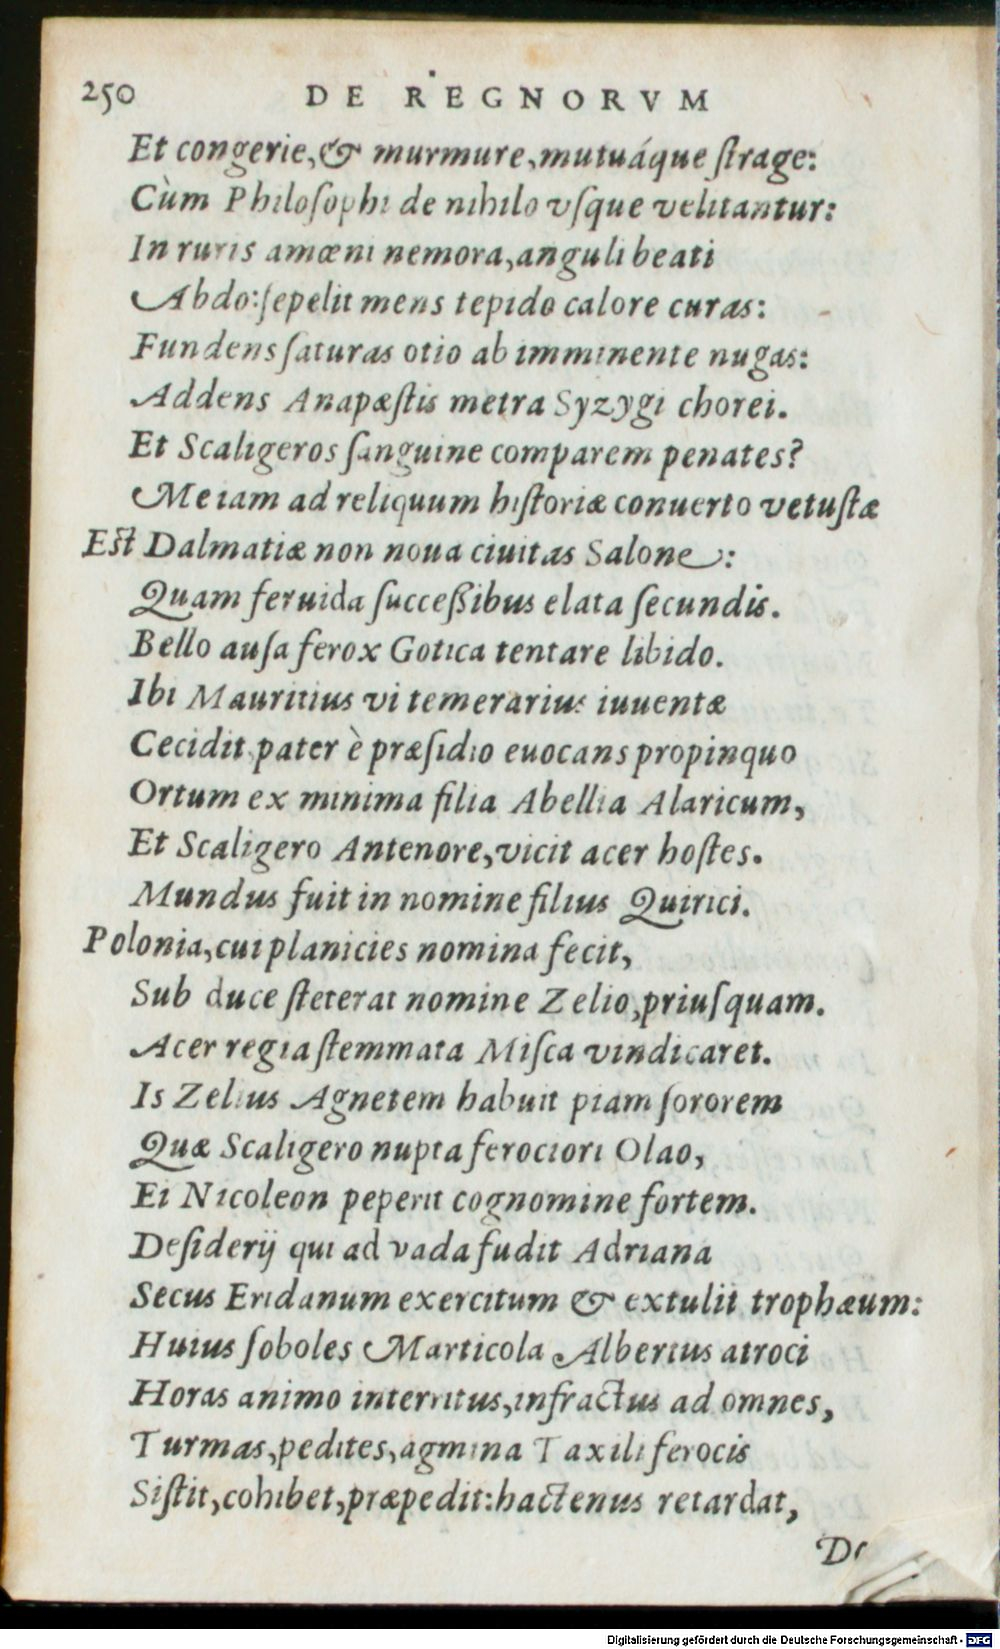 250 DE REGNORVM
Et congerie, & murmure, mutuáque ſtrage:
Cùm Philoſophi de nihilo vſque velitantur:
In ruris amœni nemora, anguli beati
Abdo: ſepelit mens tepido calore curas:
Fundens ſaturas otio ab imminente nugas:
Addens Anapæſtis metra Syzygi chorei.
Et Scaligeros ſanguine comparem penates?
Me iam ad reliquum hiſtoriæ conuerto vetuſtæ
Eſt Dalmatiæ non noua ciuitas Salone:
Quam feruida ſucceßibus elata ſecundis.
Bello auſa ferox Gotica tentare libido.
Ibi Mauritius vi temerarius iuuentæ
Cecidit. pater è præſidio euocans propinquo
Ortum ex minima filia Abellia Alaricum,
Et Scaligero Antenore, vicit acer hoſtes.
Mundus fuit in nomine filius Quirici.
Polonia, cui planicies nomina fecit,
Sub duce ſteterat nomine Zelio, priuſquam.
Acer regia ſtemmata Miſca vindicaret.
Is Zelius Agnetem habuit piam ſororem
Quæ Scaligero nupta ferociori Olao,
Ei Nicoleon peperit cognomine fortem.
Deſiderij qui ad vada fudit Adriana
Secus Eridanum exercitum & extulit trophæum:
Huius ſoboles Marticola Albertus atroci
Horas animo interritus, infractus ad omnes,
Turmas, pedites, agmina Taxili ferocis
Siſtit, cohibet, præpedit: hactenus retardat,
Digitalisierung gefördert durch die Deutsche Forschungsgemeinschaft - DFG